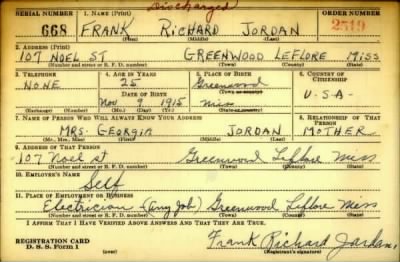 Discharged
SERIAL NUMBER 1. NAME (Print) ORDER NUMBER
668 FRANK RICHARD JORDAN 2519
(First) (Middle) (Last)
2. ADDRESS (Print)
107 NOEL ST GREENWOOD LEFLORE MISS
(Number and street or R. F. D. number) (Town) (County) (State)
3. TELEPHONE 4. AGE IN YEARS 5. PLACE OF BIRTH 6. COUNTRY OF CITIZENSHIP
NONE 25 Greenwood
DATE OF BIRTH (Town or county) U-S-A-
Nov 9 1915 Miss
(Exchange) (Number) (Mo.) (Day) (Yr.) (State or country)
7. NAME OF PERSON WHO WILL ALWAYS KNOW YOUR ADDRESS 8. RELATIONSHIP OF THAT PERSON
MRS. GEORGIA JORDAN MOTHER
(Mr., Mrs., Miss) (First) (Middle) (Last)
9. ADDRESS OF THAT PERSON
107 Noel st Greenwood Leflore Miss
(Number and street or R. F. D. number) (Town) (County) (State)
10. EMPLOYER'S NAME
Self
11. PLACE OF EMPLOYMENT OR BUSINESS
Electrician (Any Job) Greenwood Leflore Miss
(Number and street or R. F. D. number) (Town) (County) (State)
I AFFIRM THAT I HAVE VERIFIED ABOVE ANSWERS AND THAT THEY ARE TRUE.
REGISTRATION CARD Frank Richard Jordan
D. S. S. Form 1 (Registrant's signature)